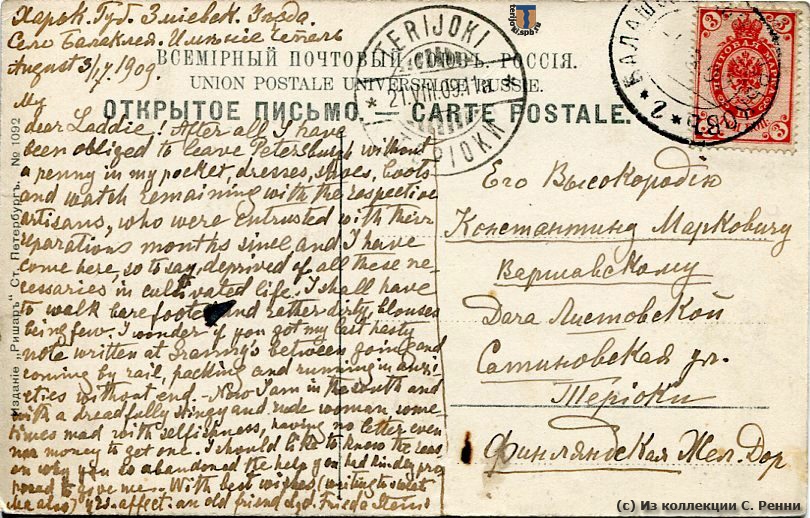 Харьк. Губ. Зміевск. Уѣзда.
Село Балаклея. Имѣніе
August 3/17. 1909.
ВСЕМІРНЫЙ ПОЧТОВЫЙ СОЮЗЪ. РОССІЯ.
UNION POSTALE UNIVERSELLE. RUSSIE.
ОТКРЫТОЕ ПИСЬМО. — CARTE POSTALE.
TERIJOKI
21.VIII.09.11a
ТЕРІОКИ
terijoki.spb.ru
БАЛАШ
3 3
ПОЧТОВАЯ МАРКА
3 3
My
dear Laddie! After all I have
been obliged to leave Petersburgh without
a penny in my pocket, dresses, shoes, boots
and watch remaining with the respective
artisans, who were entrusted with their
reparations months since and I have
come here, so to say, deprived of all these ne-
cessaries in cultivated life. I shall have
to walk barefooted and rather dirty, blouses
being few. I wonder if you got my last hasty
note written at Granny's between going and
coming by rail, packing and running in anxi-
eties without end. - Now I am in the south and
with a dreadfully stingy and rude woman some-
times mad with selfishness, having no letter even
nor money to get one. I should like to know the reas-
on why you so abandoned the help you had kindly pro-
posed to give me. With best wishes (writing to
also) yrs. affect. an old friend Frieda
Его Высокородію
Константину Марковичу
Варшавскому
Дача Листовской
Сатиновская ул.
Теріоки
Финляндская Жел. Дор
Изданіе „Ришаръ" Ст. Петербургъ. № 1092
(c) Из коллекции С. Ренни